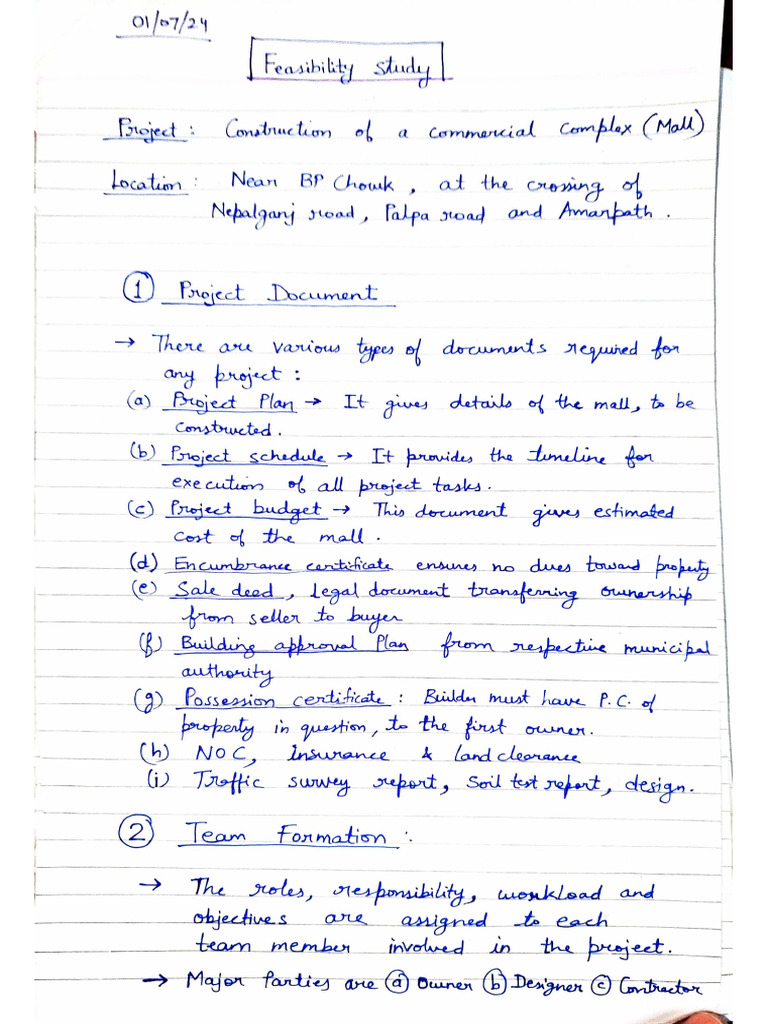 01/07/24
Feasibility Study
Project : Construction of a commercial complex (Mall)
Location : Near BP Chowk, at the crossing of
Nepalganj road, Palpa road and Amarpath.
① Project Document
→ There are various types of documents required for
any project :
(a) Project Plan → It gives details of the mall, to be
constructed.
(b) Project schedule → It provides the timeline for
execution of all project tasks.
(c) Project budget → This document gives estimated
cost of the mall.
(d) Encumbrance certificate ensures no dues toward property
(e) Sale deed, Legal document transferring ownership
from seller to buyer
(f) Building approval Plan from respective municipal
authority
(g) Possession certificate : Builder must have P.C. of
property in question, to the first owner.
(h) NOC, insurance & land clearance
(i) Traffic survey report, Soil test report, design.
② Team Formation :
→ The roles, responsibility, workload and
objectives are assigned to each
team member involved in the project.
→ Major Parties are ⓐ Owner ⓑ Designer ⓒ Contractor